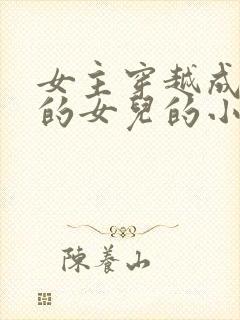 女主穿越成
的女兒的小
陳養山